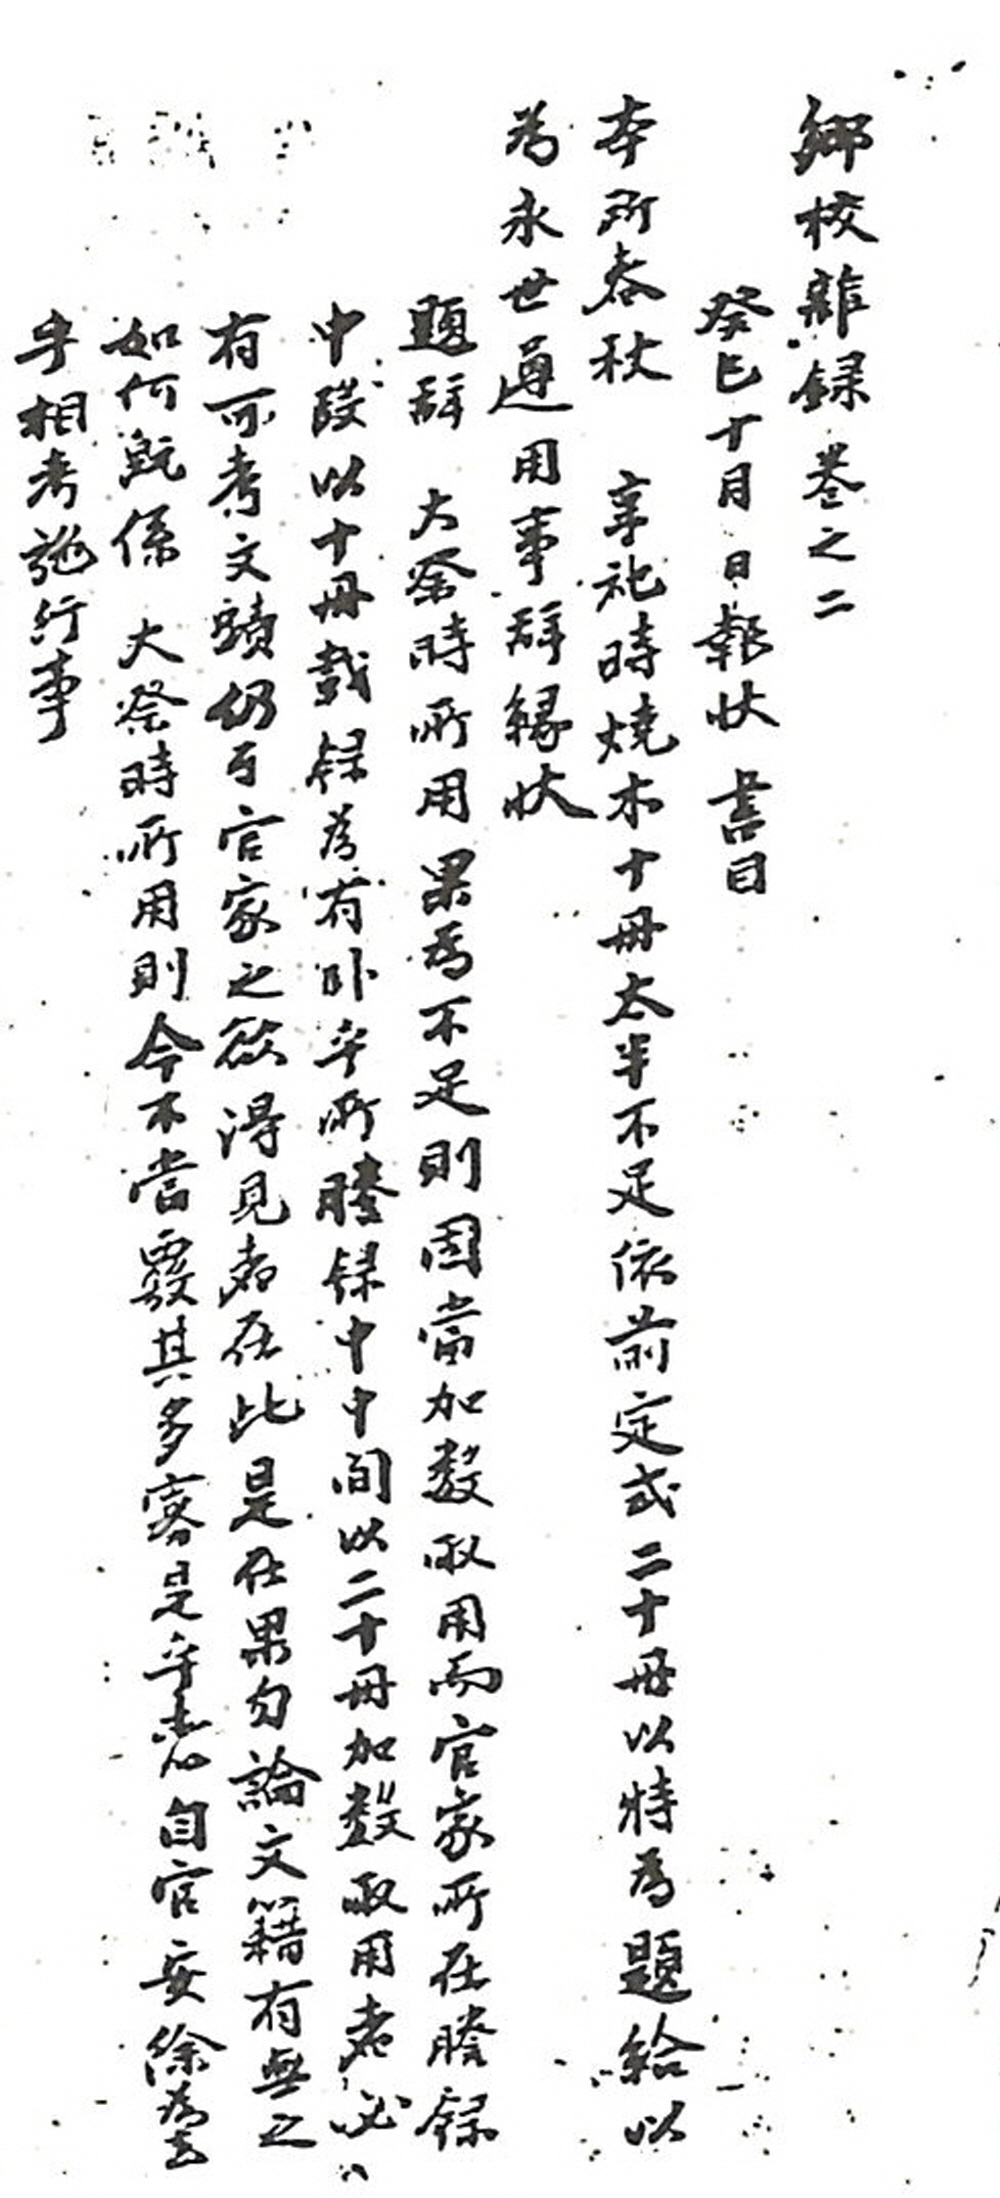 鄉校雜錄卷之二
癸巳十月 日報狀 書目
本所春秋 享祀時燒木十冊太半不足依前定式二十冊以特爲題給以
爲永世遵用事辭緣狀
題辭 大祭時所用果爲不足則固當加數取用而官家所在謄錄
中段以十冊載錄爲有卧乎所謄錄中中間以二十冊加數取用者必
有可考文蹟仍于官家之欲得見者在此是在果勿論文籍有無之
如何旣係 大祭時所用則今不當覈其多寡是乎矣自官安徐爲
乎相考施行事